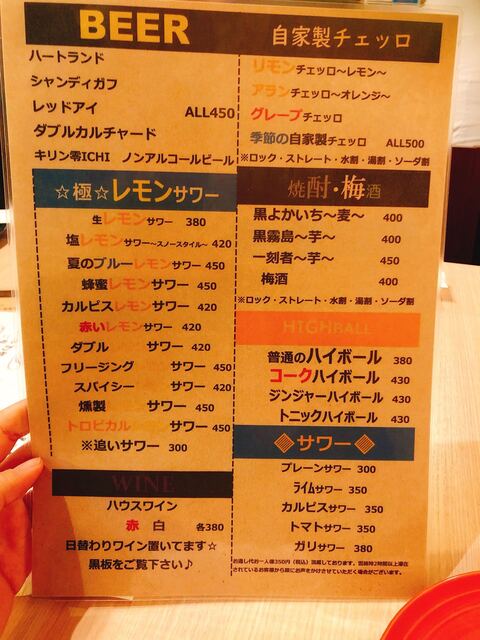 BEER
ハートランド
シャンディガフ
レッドアイ ALL450
ダブルカルチャード
キリン零ICHI ノンアルコールビール
☆極☆レモンサワー
生レモンサワー 380
塩レモンサワー〜スノースタイル〜 420
夏のブルーレモンサワー 450
蜂蜜レモンサワー 450
カルピスレモンサワー 420
赤いレモンサワー 420
ダブル サワー 420
フリージング サワー 450
スパイシー サワー 420
燻製 サワー 450
トロピカル サワー 450
※追いサワー 300
WINE
ハウスワイン
赤 白 各380
日替わりワイン置いてます☆
黒板をご覧下さい♪
自家製チェッロ
リモンチェッロ〜レモン〜
アランチェッロ〜オレンジ〜
グレープチェッロ
季節の自家製チェッロ ALL500
※ロック・ストレート・水割・湯割・ソーダ割
焼酎・梅酒
黒よかいち〜麦〜 400
黒霧島〜芋〜 400
一刻者〜芋〜 450
梅酒 400
※ロック・ストレート・水割・湯割・ソーダ割
HIGHBALL
普通のハイボール 380
コークハイボール 430
ジンジャーハイボール 430
トニックハイボール 430
サワー
プレーンサワー 300
ライムサワー 350
カルピスサワー 350
トマトサワー 350
ガリサワー 380
お通し代お一人様350円（税込）頂戴しております。混雑時2時間以上滞在
されているお客様から順にお声をかけさせていただく場合がございます。